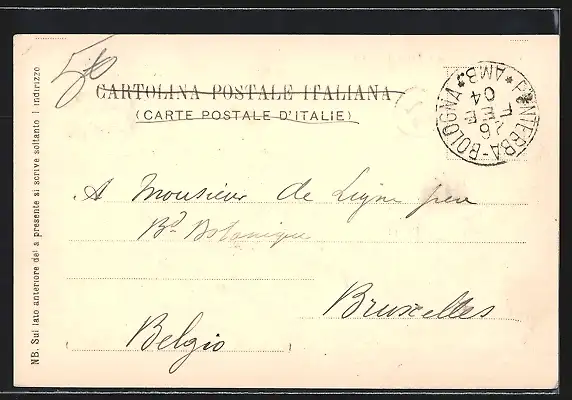 CARTOLINA POSTALE ITALIANA
(CARTE POSTALE D'ITALIE)
PONTEBBA-BOLOGNA * AMB. *
26 FEB
04
A Monsieur de Ligne
Bd Botanique
Bruxelles
Belgio
NB. Sul lato anteriore della presente si scrive soltanto l'indirizzo